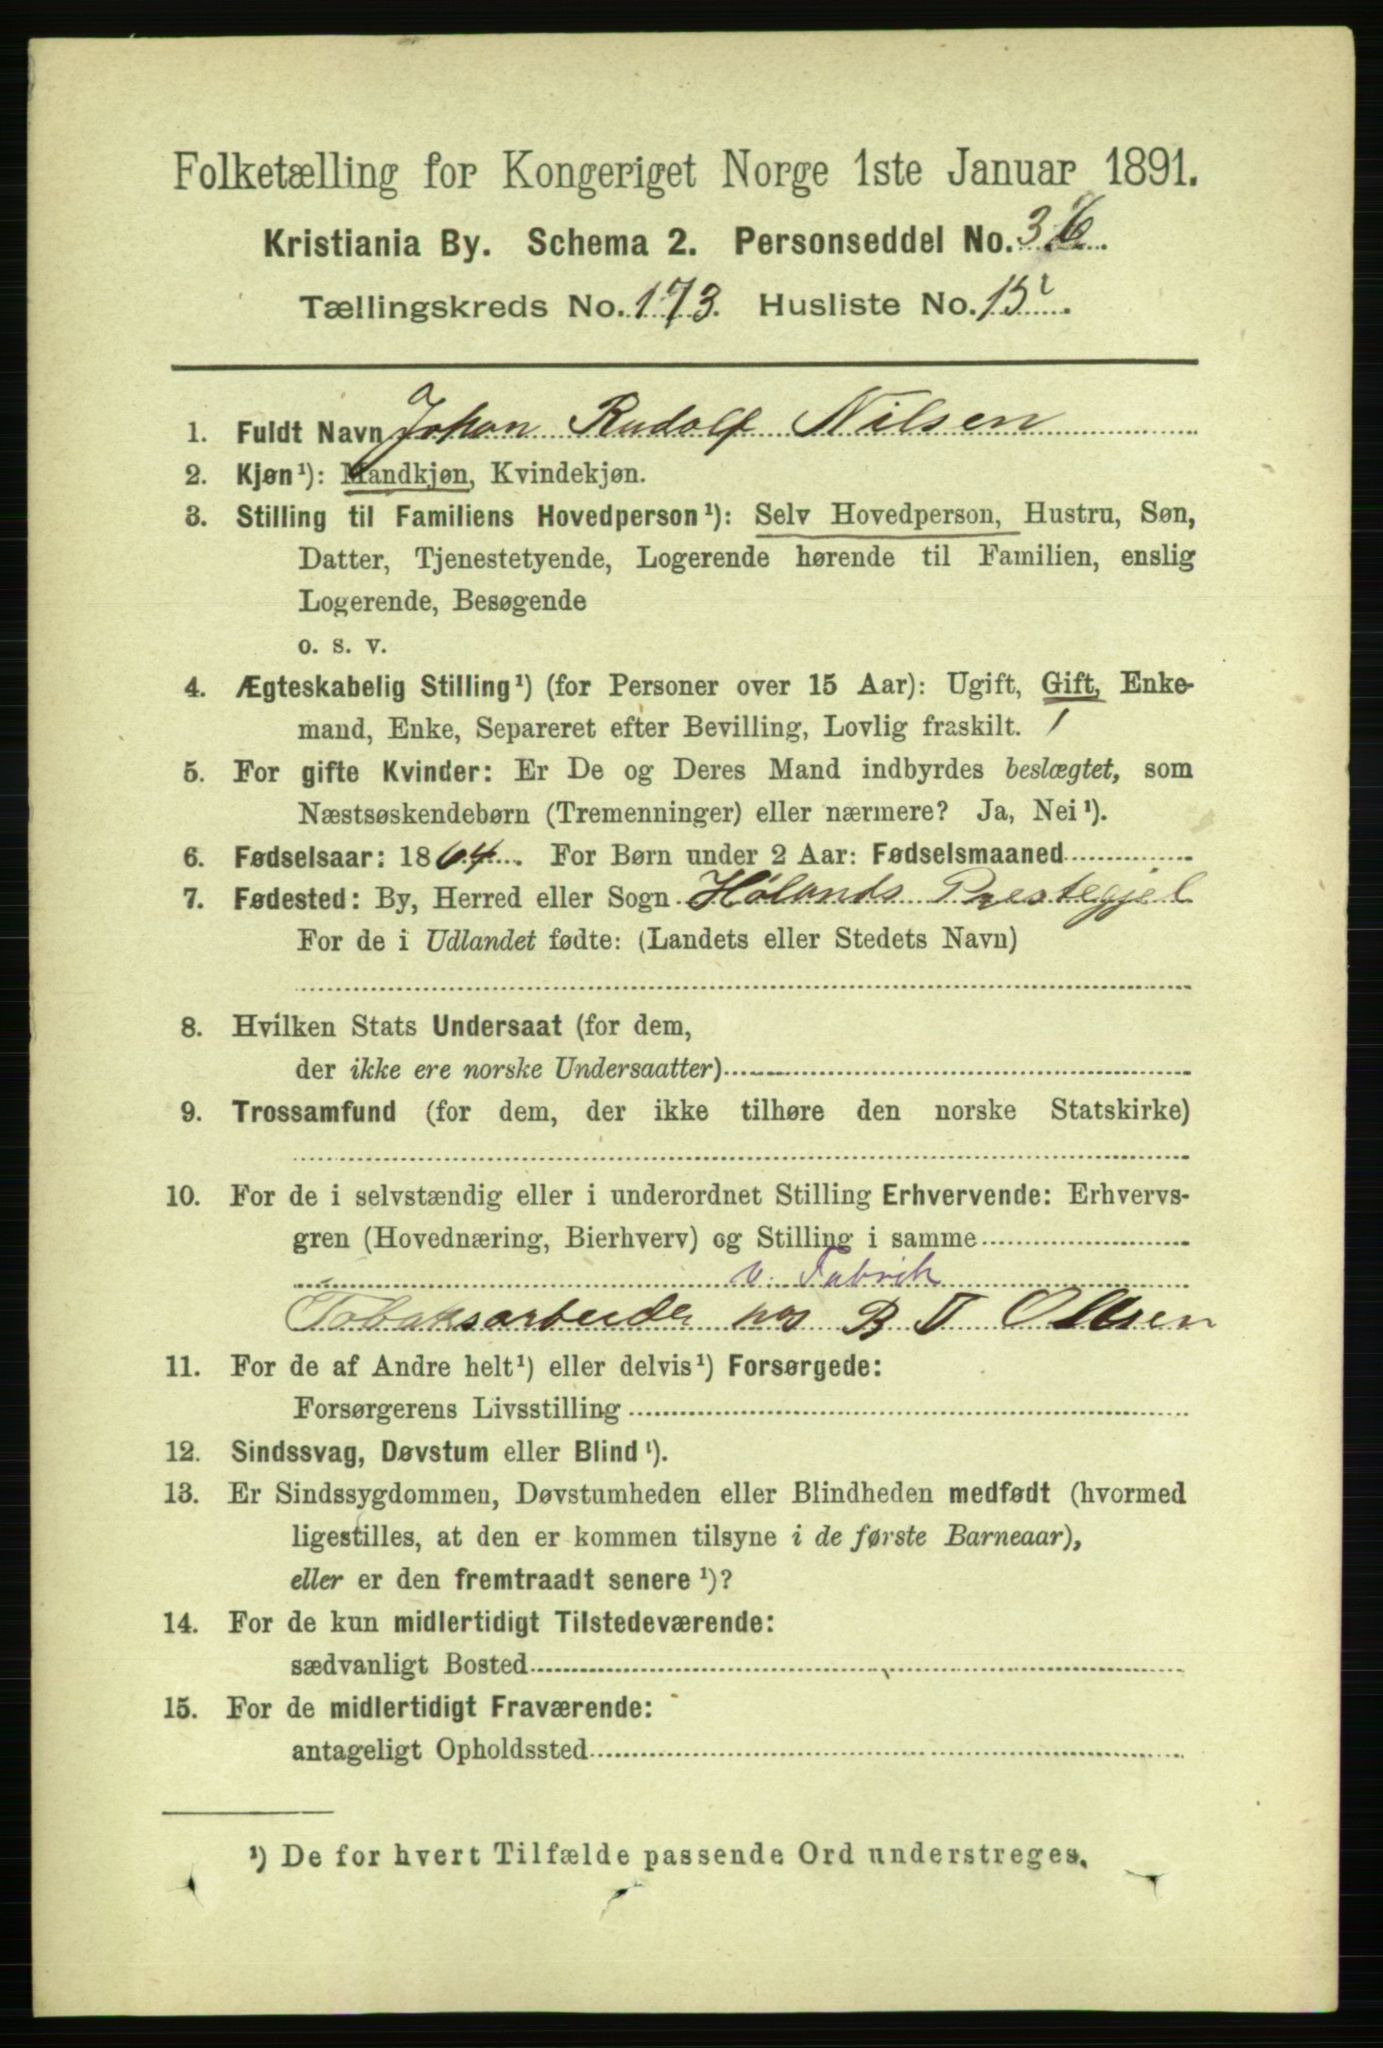 Folketælling for Kongeriget Norge 1ste Januar 1891.
Kristiania By. Schema 2. Personseddel No. 36.
Tællingskreds No. 173. Husliste No. 15.
1. Fuldt Navn Johan Rudolf Nilsen
2. Kjøn¹): Mandkjøn, Kvindekjøn.
3. Stilling til Familiens Hovedperson¹): Selv Hovedperson, Hustru, Søn,
Datter, Tjenestetyende, Logerende hørende til Familien, enslig
Logerende, Besøgende
o. s. v.
4. Ægteskabelig Stilling¹) (for Personer over 15 Aar): Ugift, Gift, Enke-
mand, Enke, Separeret efter Bevilling, Lovlig fraskilt. /
5. For gifte Kvinder: Er De og Deres Mand indbyrdes beslægtet, som
Næstsøskendebørn (Tremenninger) eller nærmere? Ja, Nei¹).
6. Fødselsaar: 1864. For Børn under 2 Aar: Fødselsmaaned
7. Fødested: By, Herred eller Sogn Hølands Prestegjel
For de i Udlandet fødte: (Landets eller Stedets Navn)
8. Hvilken Stats Undersaat (for dem,
der ikke ere norske Undersaatter)
9. Trossamfund (for dem, der ikke tilhøre den norske Statskirke)
10. For de i selvstændig eller i underordnet Stilling Erhvervende: Erhvervs-
gren (Hovednæring, Bierhverv) og Stilling i samme
v. Fabrik
Tobaksarbeider hos B T Olsen
11. For de af Andre helt¹) eller delvis¹) Forsørgede:
Forsørgerens Livsstilling
12. Sindssvag, Døvstum eller Blind¹).
13. Er Sindssygdommen, Døvstumheden eller Blindheden medfødt (hvormed
ligestilles, at den er kommen tilsyne i de første Barneaar),
eller er den fremtraadt senere¹)?
14. For de kun midlertidigt Tilstedeværende:
sædvanligt Bosted
15. For de midlertidigt Fraværende:
antageligt Opholdssted
¹) De for hvert Tilfælde passende Ord understreges.